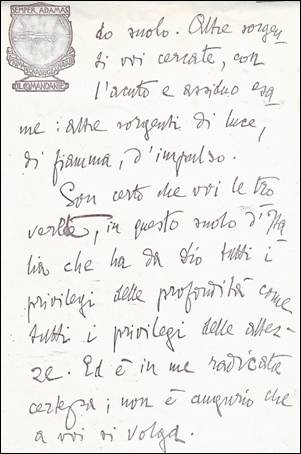 SEMPER ADAMAS
IL COMANDANTE
do suolo. Altre sorgen
ti voi cercate, con
l'acuto e assiduo esa
me: altre sorgenti di luce,
di fiamma, d'impulso.
Son certo che voi le tro
verete, in questo suolo d'Ita
lia che ha da Dio tutti i
privilegi delle profondità come
tutti i privilegi delle altez-
ze. Ed è in me radicata
certezza; non è augurio che
a voi si volga.